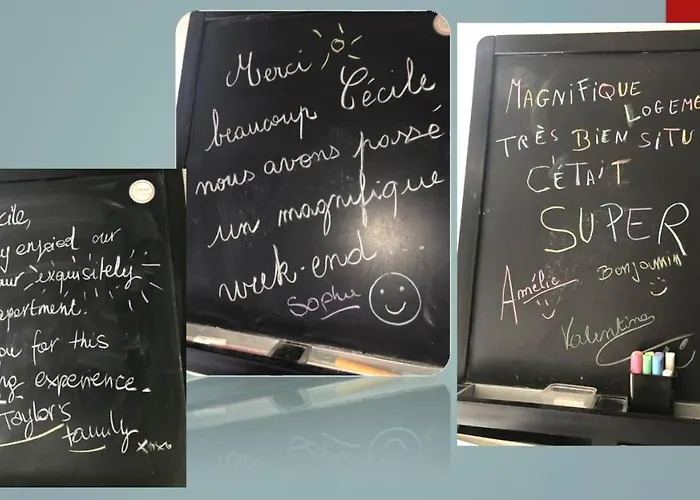 cile,
y enjoied our
our exquisitely
apartment.
ou for this
ng experience.
Taylor's
family xoxo
Merci
beaucoup Cécile
nous avons passé
un magnifique
week-end...
Sophie
MAGNIFIQUE
LOGEME
TRÈS BIEN SITU
C'ÉTAIT
SUPER
Amélie Benjamin
Valentine